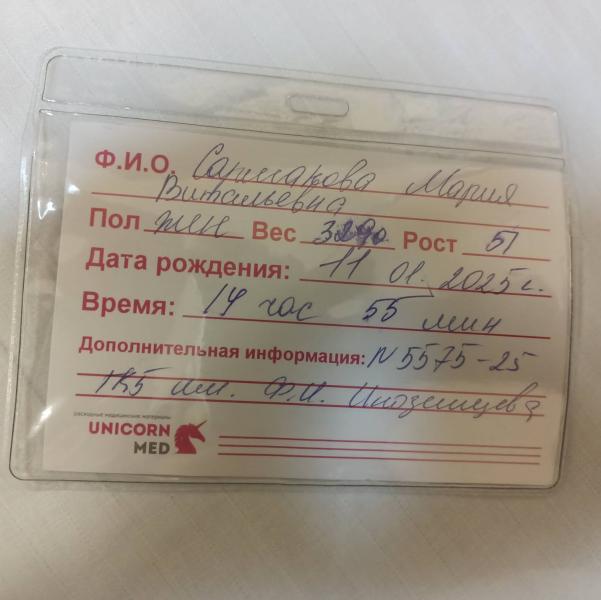 Ф.И.О. Мария
Витальевна
Пол жен Вес 3290 Рост 51
Дата рождения: 11 01. 2025 г.
Время: 14 час 55 мин
Дополнительная информация: N 5575-25
им. Ф.И. Иноземцева
РАСХОДНЫЕ МЕДИЦИНСКИЕ МАТЕРИАЛЫ
UNICORN
MED